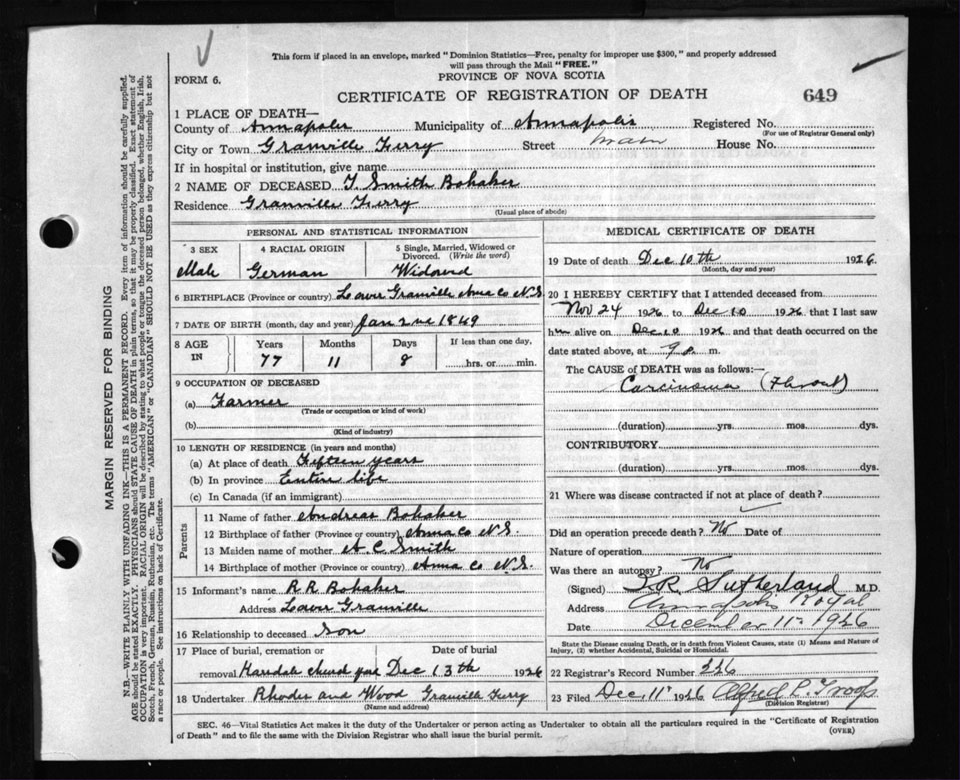 This form if placed in an envelope, marked "Dominion Statistics—Free, penalty for improper use $300," and properly addressed
will pass through the Mail "FREE."
FORM 6.
PROVINCE OF NOVA SCOTIA
CERTIFICATE OF REGISTRATION OF DEATH
649
1 PLACE OF DEATH—
County of Annapolis Municipality of Annapolis Registered No.
(For use of Registrar General only)
City or Town Granville Ferry Street Main House No.
If in hospital or institution, give name
2 NAME OF DECEASED T. Smith Bohaker
Residence Granville Ferry
(Usual place of abode)
PERSONAL AND STATISTICAL INFORMATION
3 SEX 4 RACIAL ORIGIN 5 Single, Married, Widowed or
Divorced. (Write the word)
Male German Widowed
6 BIRTHPLACE (Province or country) Lower Granville Anna Co N.S.
7 DATE OF BIRTH (month, day and year) Jan 2nd 1849
8 AGE Years Months Days If less than one day,
IN 77 11 8 hrs. or min.
9 OCCUPATION OF DECEASED
(a) Farmer
(Trade or occupation or kind of work)
(b)
(Kind of industry)
10 LENGTH OF RESIDENCE (in years and months)
(a) At place of death Fifteen years
(b) In province Entire life
(c) In Canada (if an immigrant)
Parents
11 Name of father Andreas Bohaker
12 Birthplace of father (Province or country) Anna Co N.S.
13 Maiden name of mother A. C. Smith
14 Birthplace of mother (Province or country) Anna Co N.S.
15 Informant's name R R Bohaker
Address Lower Granville
16 Relationship to deceased Son
17 Place of burial, cremation or Date of burial
removal Karsdale church yard Dec 13th 1926
18 Undertaker Rhodes and Wood Granville Ferry
(Name and address)
MEDICAL CERTIFICATE OF DEATH
19 Date of death Dec 10th 1926.
(Month, day and year)
20 I HEREBY CERTIFY that I attended deceased from
Nov 24 1926 to Dec 10 1926 that I last saw
him alive on Dec 10 1926 and that death occurred on the
date stated above, at 9 p. m.
The CAUSE of DEATH was as follows:—
Carcinoma (Throat)
(duration) yrs. mos. dys.
CONTRIBUTORY
(duration) yrs. mos. dys.
21 Where was disease contracted if not at place of death?
Did an operation precede death? No Date of
Nature of operation
Was there an autopsy? No
(Signed) Sutherland M.D.
Address Annapolis Royal
Date December 11th 1926
State the Disease causing Death, or in death from Violent Causes, state (1) Means and Nature of
Injury, (2) whether Accidental, Suicidal or Homicidal.
22 Registrar's Record Number 226
23 Filed Dec 11th 1926 Alfred L. Troop
(Division Registrar)
SEC. 46—Vital Statistics Act makes it the duty of the Undertaker or person acting as Undertaker to obtain all the particulars required in the "Certificate of Registration
of Death" and to file the same with the Division Registrar who shall issue the burial permit.
(OVER)
MARGIN RESERVED FOR BINDING
N.B.—WRITE PLAINLY WITH UNFADING INK—THIS IS A PERMANENT RECORD. Every item of information should be carefully supplied.
AGE should be stated EXACTLY. PHYSICIANS should STATE CAUSE OF DEATH in plain terms, so that it may be properly classified. Exact statement of
OCCUPATION is very important. RACIAL ORIGIN will be described by stating to what people or tongue the deceased person belonged, whether English, Irish,
Scotch, French, German, Russian, Ruthenian, etc. The terms "AMERICAN" or "CANADIAN" SHOULD NOT BE USED as they express citizenship but not
a race or people. See instructions on back of Certificate.